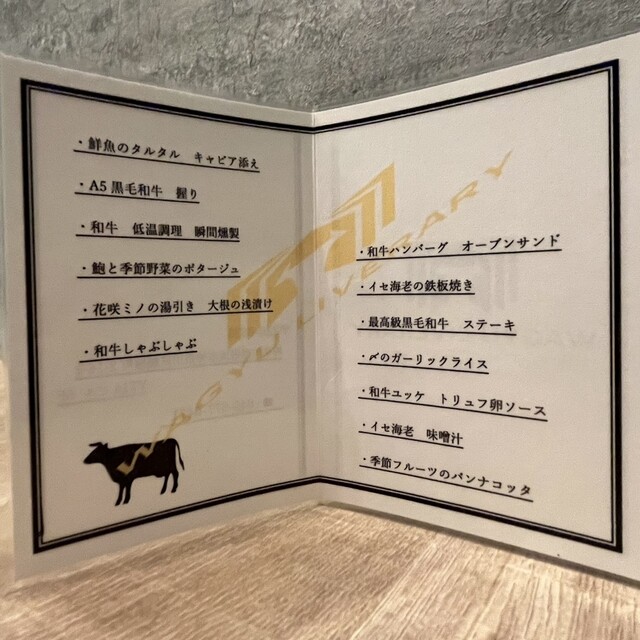 ・鮮魚のタルタル キャビア添え
・A5黒毛和牛 握り
・和牛 低温調理 瞬間燻製
・鮑と季節野菜のポタージュ
・花咲ミノの湯引き 大根の浅漬け
・和牛しゃぶしゃぶ
・和牛ハンバーグ オープンサンド
・イセ海老の鉄板焼き
・最高級黒毛和牛 ステーキ
・〆のガーリックライス
・和牛ユッケ トリュフ卵ソース
・イセ海老 味噌汁
・季節フルーツのパンナコッタ
WAGYU LIVERARY